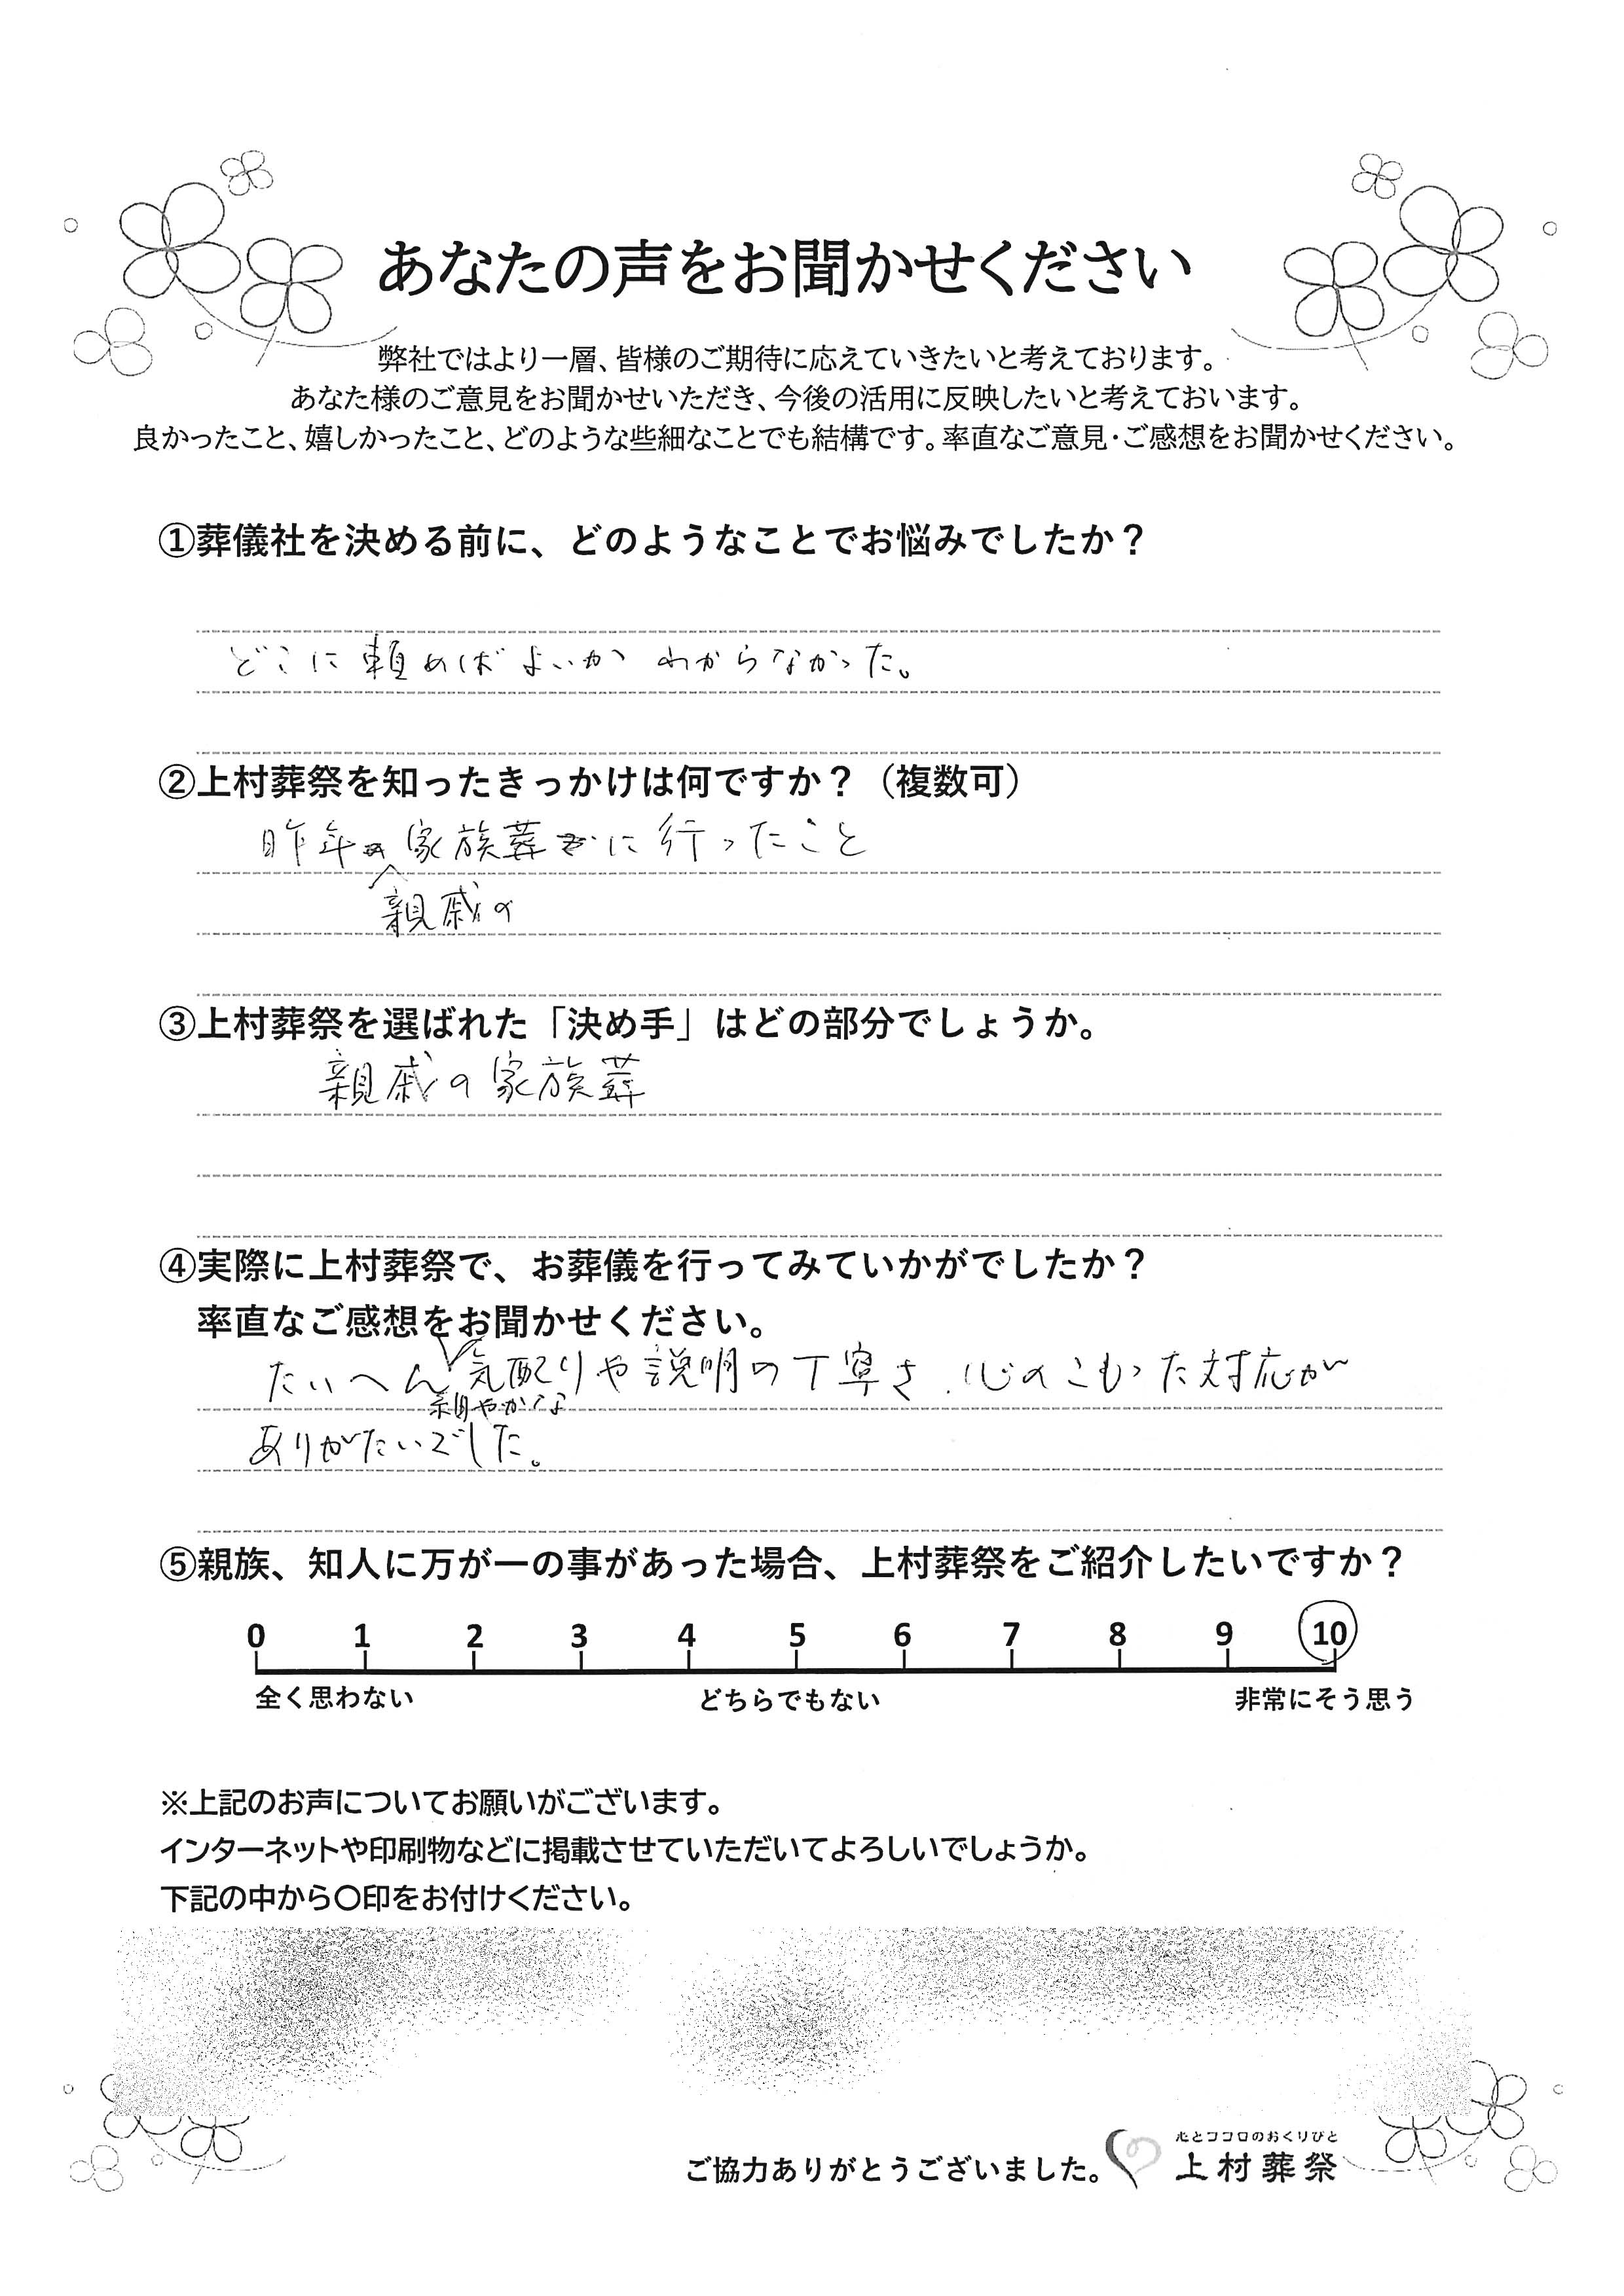 あなたの声をお聞かせください
弊社ではより一層、皆様のご期待に応えていきたいと考えております。
あなた様のご意見をお聞かせいただき、今後の活用に反映したいと考えておいます。
良かったこと、嬉しかったこと、どのような些細なことでも結構です。率直なご意見・ご感想をお聞かせください。
①葬儀社を決める前に、どのようなことでお悩みでしたか？
どこに頼めばよいか わからなかった。
②上村葬祭を知ったきっかけは何ですか？（複数可）
昨年 家族葬に行ったこと
親戚の
③上村葬祭を選ばれた「決め手」はどの部分でしょうか。
親戚の家族葬
④実際に上村葬祭で、お葬儀を行ってみていかがでしたか？
率直なご感想をお聞かせください。
たいへん気配りや説明の丁寧さ、心のこもった対応が
細やかな
ありがたいでした。
⑤親族、知人に万が一の事があった場合、上村葬祭をご紹介したいですか？
0 1 2 3 4 5 6 7 8 9 10
全く思わない どちらでもない 非常にそう思う
※上記のお声についてお願いがございます。
インターネットや印刷物などに掲載させていただいてよろしいでしょうか。
下記の中から〇印をお付けください。
心とココロのおくりびと
ご協力ありがとうございました。 上村葬祭